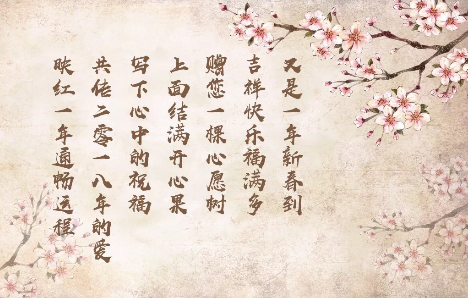 又是一年新春到
吉祥快乐福满多
赠您一棵心愿树
上面结满开心果
写下心中的祝福
共佬二零一八年的爱
映红一年通畅远程